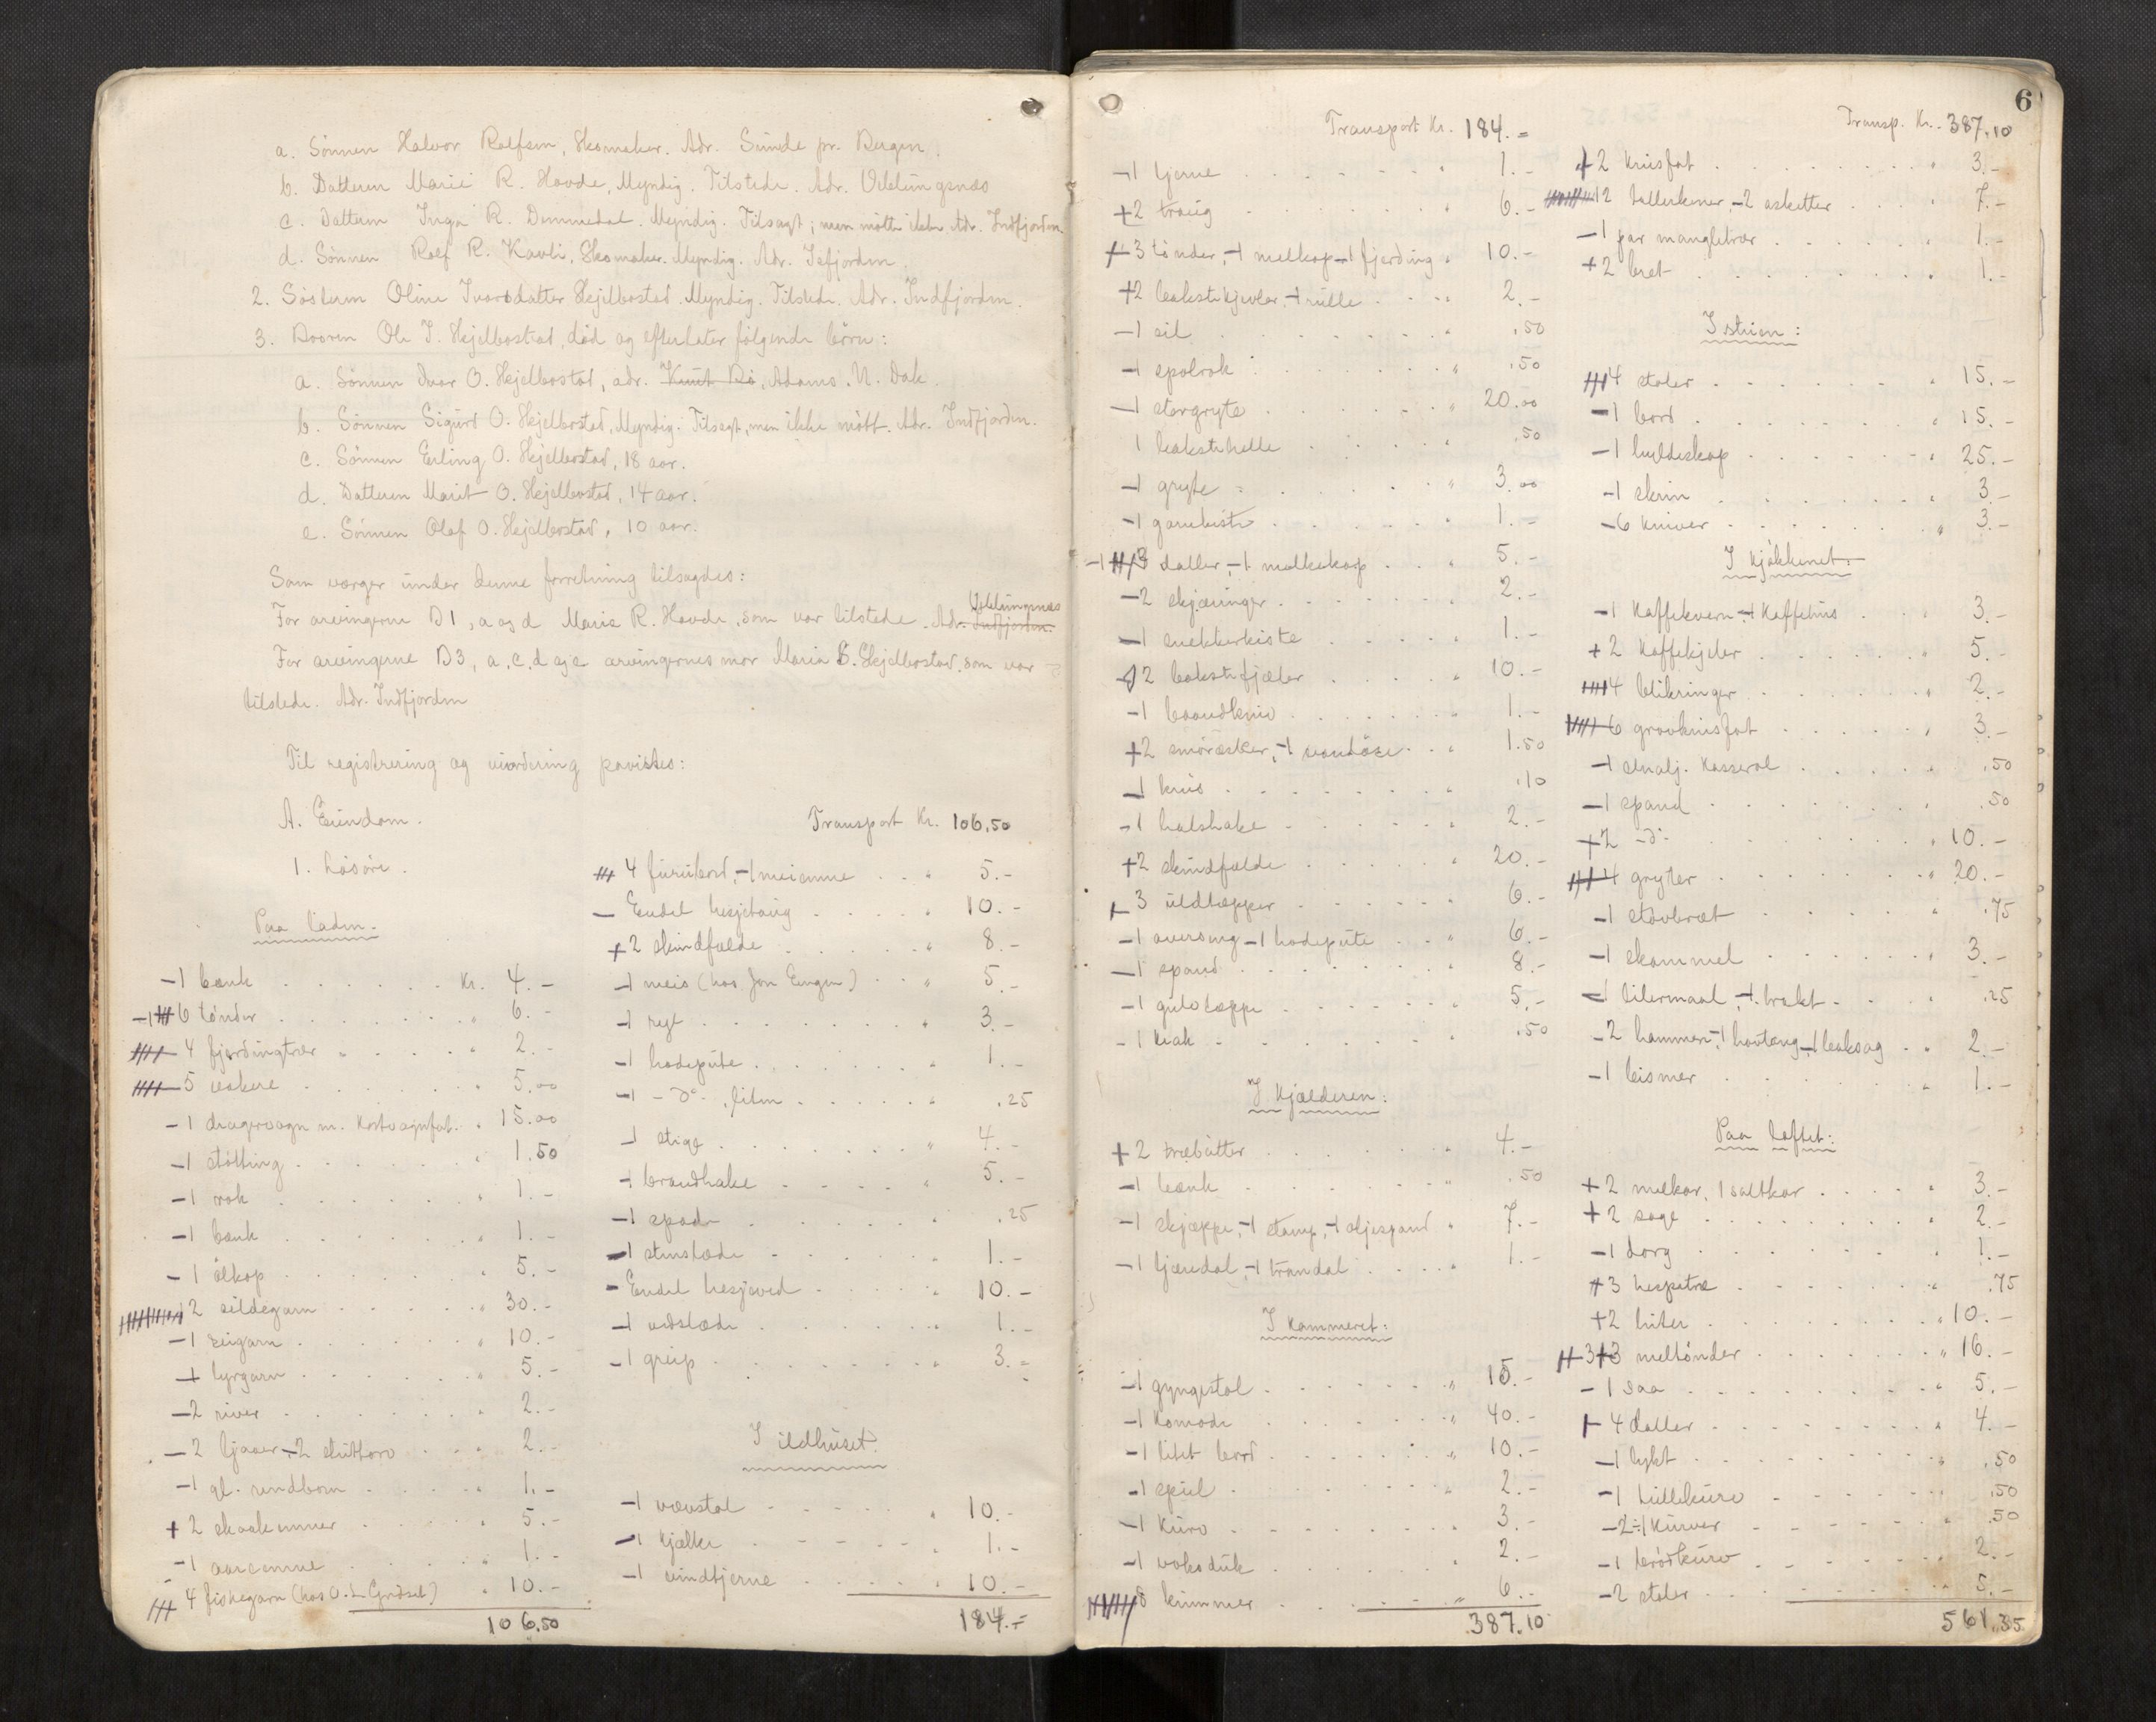 a. Sönnen Halvor Rolfsen, Skomaker. Adr. Sunde pr. Bergen.
b. Datteren Marie R. Hovde, Myndig. Tilstede. Adr. Veblungsnæs
c. Datteren Inga R. Dømmedal. Myndig. Tilsagt; men mötte ikke. Adr. Indfjorden.
d. Sönnen Rolf R. Kavli, Skomaker. Myndig. Adr. Isfjorden
2. Sösteren Oline Ivarsdatter Skjelbostad. Myndig. Tilstede. Adr. Indfjorden.
3. Broren Ole I. Skjelbostad, död og efterlater følgende börn:
a. Sönnen Ivar O. Skjelbostad, adr. Knut Rö, Adams. N. Dak.
b. Sönnen Sigurd O. Skjelbostad, Myndig. Tilsagt, men ikke mött. Adr. Indfjorden.
c. Sönnen Erling O. Skjelbostad, 18 aar.
d. Datteren Marit O. Skjelbostad, 14 aar.
e. Sönnen Olaf O. Skjelbostad, 10 aar.
Som værger under denne forretning tilsagdes:
For arvingerne D1, a og d Marie R. Hovde, som var tilstede. Adr. Indfjorden. Veblungsnæs
For arvingerne D3, a, c, d og e arvingernes mor Maria S. Skjelbostad, som var
tilstede. Adr. Indfjorden
Til registrering og vurdering paavistes:
A. Eiendom.
1. Lösöre.
Paa laaden.
1 bænk Kr. 4.-
6 tönder " 6.-
4 fjerdingtrær " 2.-
5 vakere " 5.00
1 dragervogn m. Kostvognfat. " 15.00
1 stötting " 1.50
1 rok " 1.-
1 bænk " 1.-
1 ölkop " 5.-
12 sildegarn " 30.-
1 seigarn " 10.-
1 lyrgarn " 5.-
2 river " 2.-
2 ljaaer, 2 stuttorv " 2.-
1 gl. rundbom " 1.-
2 skaakummer " 5.-
1 aaremme " 1.-
4 fiskegarn (hos O. L. Grödsel) " 10.-
106.50
Transport Kr. 106.50
4 furubord, 1 meiemme " 5.-
Endel hesjetaug " 10.-
2 skindfælde " 8.-
1 meis (hos Jon Eingen) " 5.-
1 rygt " 3.-
1 hodepute " 1.-
1 -do-, liten " .25
1 stige " 4.-
1 brandhake " 5.-
1 spade " .25
1 stenslæde " 1.-
Endel hesjeved " 10.-
1 vedslæde " 1.-
1 greip " 3.=
I ildhuset.
1 vævstol " 10.-
1 kjælke " 1.-
1 vindtjerne " 10.-
184.=
6
Transport Kr. 184.=
1 tjerne " 1.-
2 traug " 6.-
3 tönder, 1 melkop, 1 fjerding " 10.-
2 bakstekjevler, 1 rulle " 2.-
1 sil " .50
1 spolrok " .50
1 storgryte " 20.00
1 bakstehelle " .50
1 gryte " 3.00
1 garnkiste " 1.-
3 daller, 1 melkekop " 5.-
2 skjæringer " 2.-
1 snekkerkiste " 1.-
2 bakstefjæler " 10.-
1 baandkniv " 1.-
2 smöræsker, 1 vandöse " 1.50
1 krus " .10
1 halshake " 2.-
2 skindfælde " 20.-
3 uldtæpper " 6.-
1 overseng, 1 hodepute " 6.-
1 spand " 8.-
1 gulvtæppe " 5.-
1 krak " .50
I Kjælderen:
2 træbötter " 4.-
1 bænk " .50
1 skjæppe, 1 stamp, 1 oljespand " 7.-
1 tjæredal, 1 trandal " 1.-
I Kammeret:
1 gyngestol " 15.-
1 Komode " 40.-
1 litet bord " 10.-
1 speil " 2.-
1 Kurv " 3.-
1 voksduk " 2.-
8 krimmer " 6.-
387.10
Transp. Kr. 387.10
2 krusfat " 3.-
12 tallerkener, 2 asketter " 7.-
1 par mangletrær " 1.-
2 bret " 1.-
I stuen:
4 stoler " 15.-
1 bord " 15.-
1 hyldeskap " 25.-
1 skrin " 3.-
6 kniver " 3.-
I Kjökkenet.
1 Kaffekvern, 1 Kaffehus " 3.-
2 Kaffekjeler " 5.-
4 blikringer " 2.-
6 grovkrusfat " 3.-
1 emalj. Kasserol " .50
1 spand " .50
2 -d- " 10.-
4 gryter " 20.-
1 stövbræt " .75
1 skammel " 3.-
1 litermaal, 1 trakt " .25
2 hammer, 1 hovtang, 1 baksag " 2.-
1 bismer " 1.-
Paa loftet:
2 melkar, 1 saltkar " 3.-
2 sage " 2.-
1 dorg " 1.-
3 hespetræ " .75
2 huder " 10.-
3 meltönder " 16.-
1 saa " 5.-
4 daller " 4.-
1 lykt " .50
1 tullekurv " .50
2 Kurver " .50
1 brödkurv " 2.-
2 stoler " 5.-
561.35